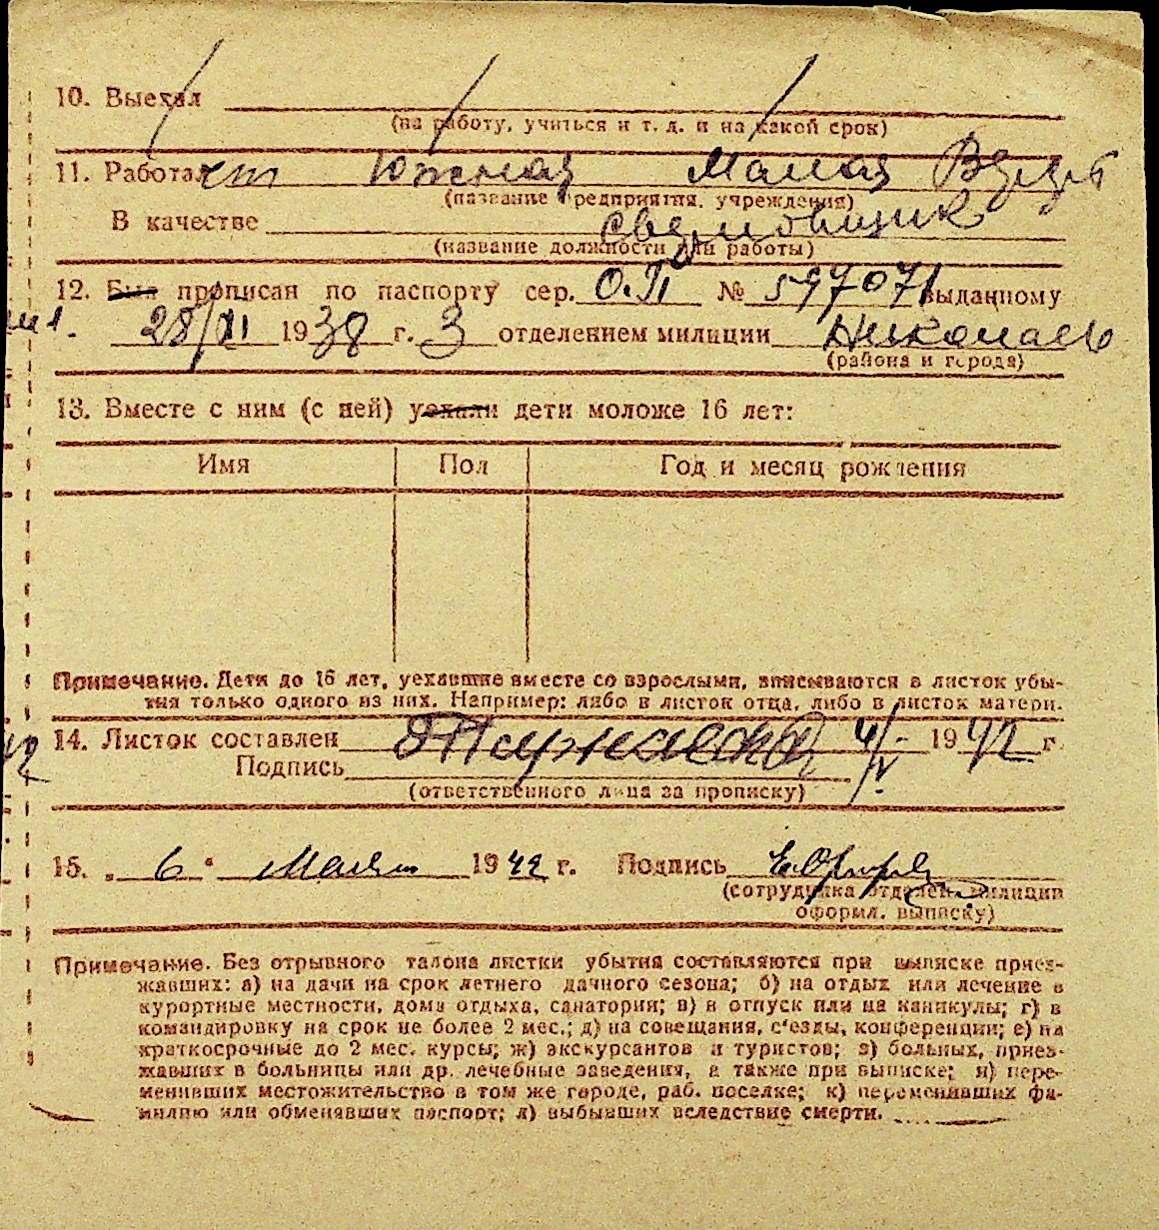 10. Выехал
(на работу, учиться и т. д. и на какой срок)
11. Работал ст Южная Малая
(название предприятия, учреждения)
В качестве сверловщик
(название должности или работы)
12. Был прописан по паспорту сер. О.П № 597071 выданному
28/XI 1938 г. 3 отделением милиции Николаев
(района и города)
13. Вместе с ним (с ней) уехали дети моложе 16 лет:
Имя Пол Год и месяц рождения
Примечание. Дети до 16 лет, уехавшие вместе со взрослыми, вписываются в листок убы-
тия только одного из них. Например: либо в листок отца, либо в листок матери.
14. Листок составлен 4/V 1942 г.
Подпись
(ответственного лица за прописку)
15. „ 6 “ Мая 1942 г. Подпись
(сотрудника отделен. милиции
оформл. выписку)
Примечание. Без отрывного талона листки убытия составляются при выписке приез-
жавших: а) на дачи на срок летнего дачного сезона; б) на отдых или лечение в
курортные местности, дома отдыха, санатории; в) в отпуск или на каникулы; г) в
командировку на срок не более 2 мес.; д) на совещания, с'езды, конференции; е) на
краткосрочные до 2 мес. курсы; ж) экскурсантов и туристов; з) больных, приез-
жавших в больницы или др. лечебные заведения, а также при выписке; и) пере-
менивших местожительство в том же городе, раб. поселке; к) переменивших фа-
милию или обменявших паспорт; л) выбывших вследствие смерти.